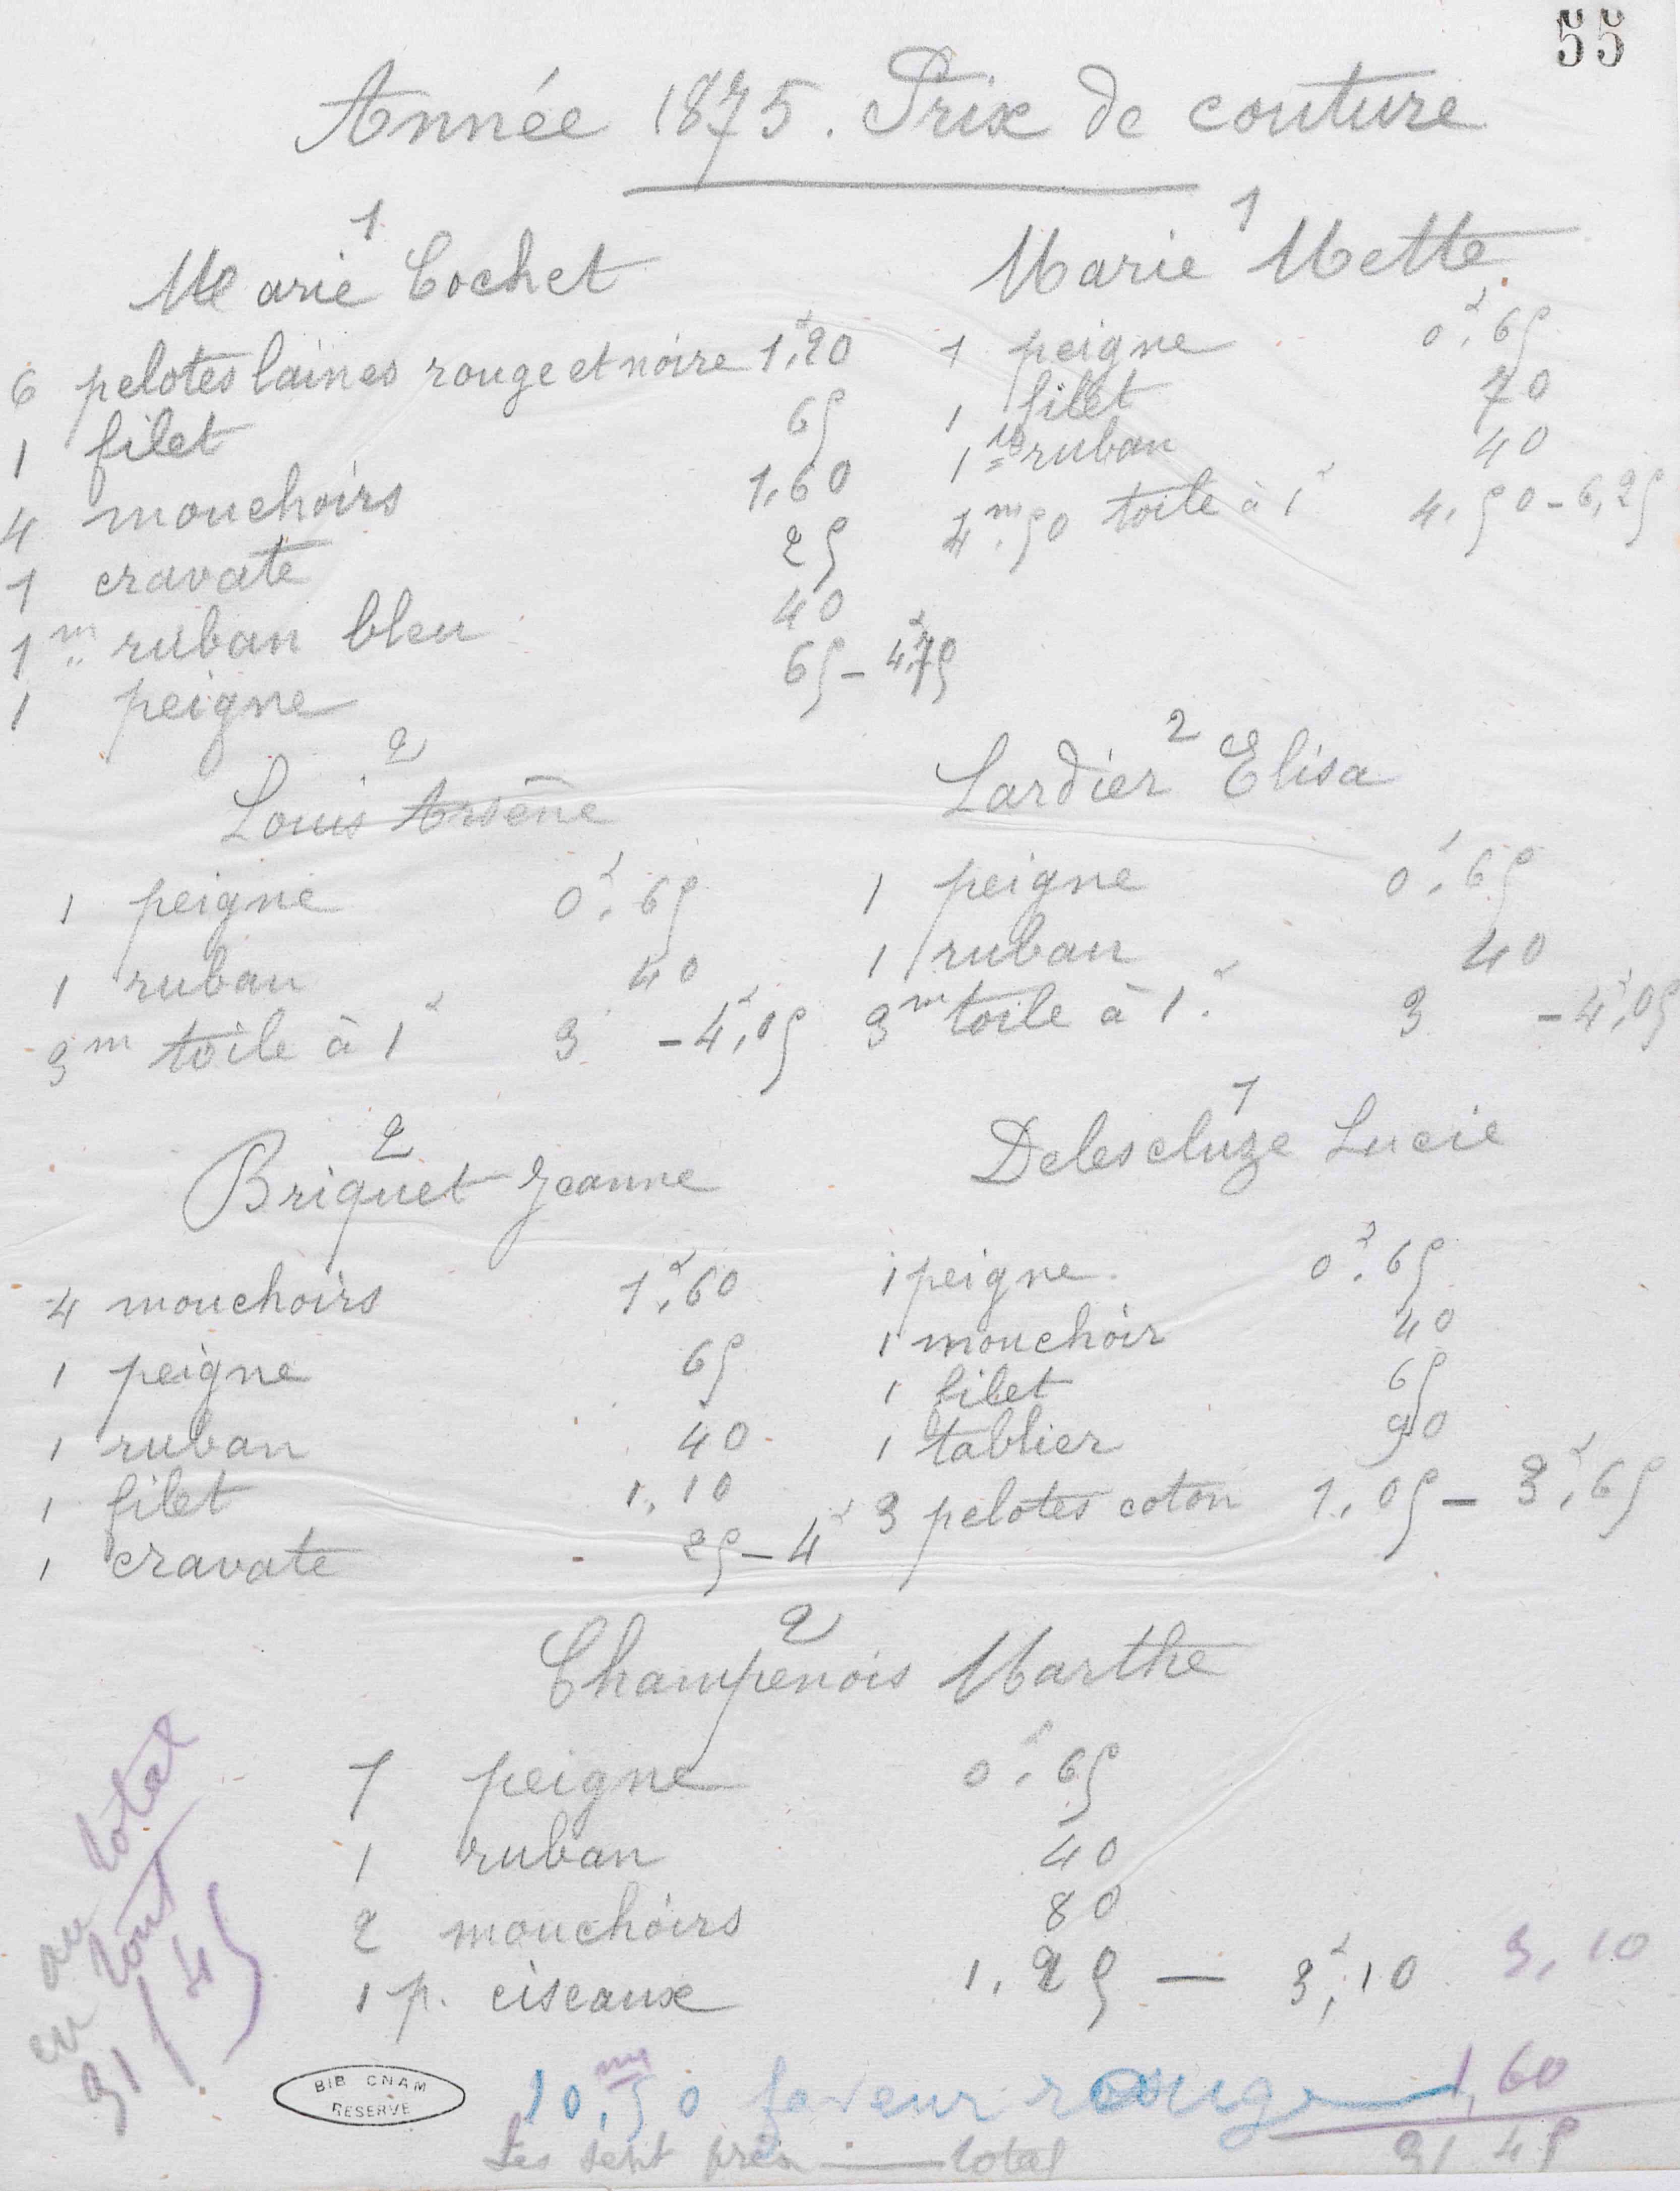 55
Année 1875. Prix de couture
1
Marie Cochet
6 pelotes laines rouge et noire 1f,20
1 filet 65
4 mouchoirs 1,60
1 cravate 25
1m ruban bleu 40
1 peigne 65 – 4f,75
1
Marie Mette
1 peigne 0f,65
1 filet 70
1m ruban 40
4m,50 toile à 1f 4,50 – 6,25
2
Louis Arsène
1 peigne 0f,65
1 ruban 40
3m toile à 1f 3 – 4f,05
2
Lardier Elisa
1 peigne 0f,65
1 ruban 40
3m toile à 1f. 3 – 4f,05
2
Briquet Jeanne
4 mouchoirs 1f,60
1 peigne 65
1 ruban 40
1 filet 1,10
1 cravate 25 – 4f
1
Delescluze Lucie
1 peigne 0f,65
1 mouchoir 40
1 filet 65
1 tablier 90
3 pelotes coton 1,05 – 3f,65
2
Champenois Marthe
1 peigne 0f,65
1 ruban 40
2 mouchoirs 80
1 p. ciseaux 1,25 – 3f,10 3,10
au total
en tout
31f 45
10m,50 faveur rouge 1,60
Les sept prix total 31 45
BIB CNAM
RESERVE